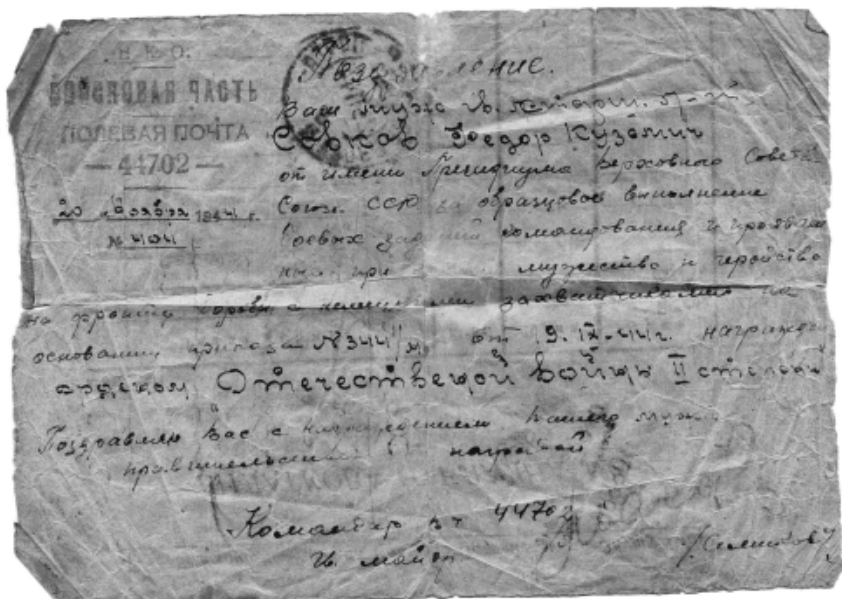 Н. К. О.
ВОЙСКОВАЯ ЧАСТЬ
ПОЛЕВАЯ ПОЧТА
— 44702 —
20 ноября 1944 г.
№ 404
Ваш муж гв.
Севков Федор Кузьмич
от имени Президиума Верховного Совета
Союза ССР за образцовое выполнение
боевых заданий командования и проявлен
при мужество и геройство
на фронте борьбы с немецкими захватчиками на
основании приказа №344/н от 19.IX-44г. награжден
орденом Отечественной Войны II степени
Поздравляю Вас с награждением Вашего мужа
наградой
Командир в.ч 44702
гв. майор